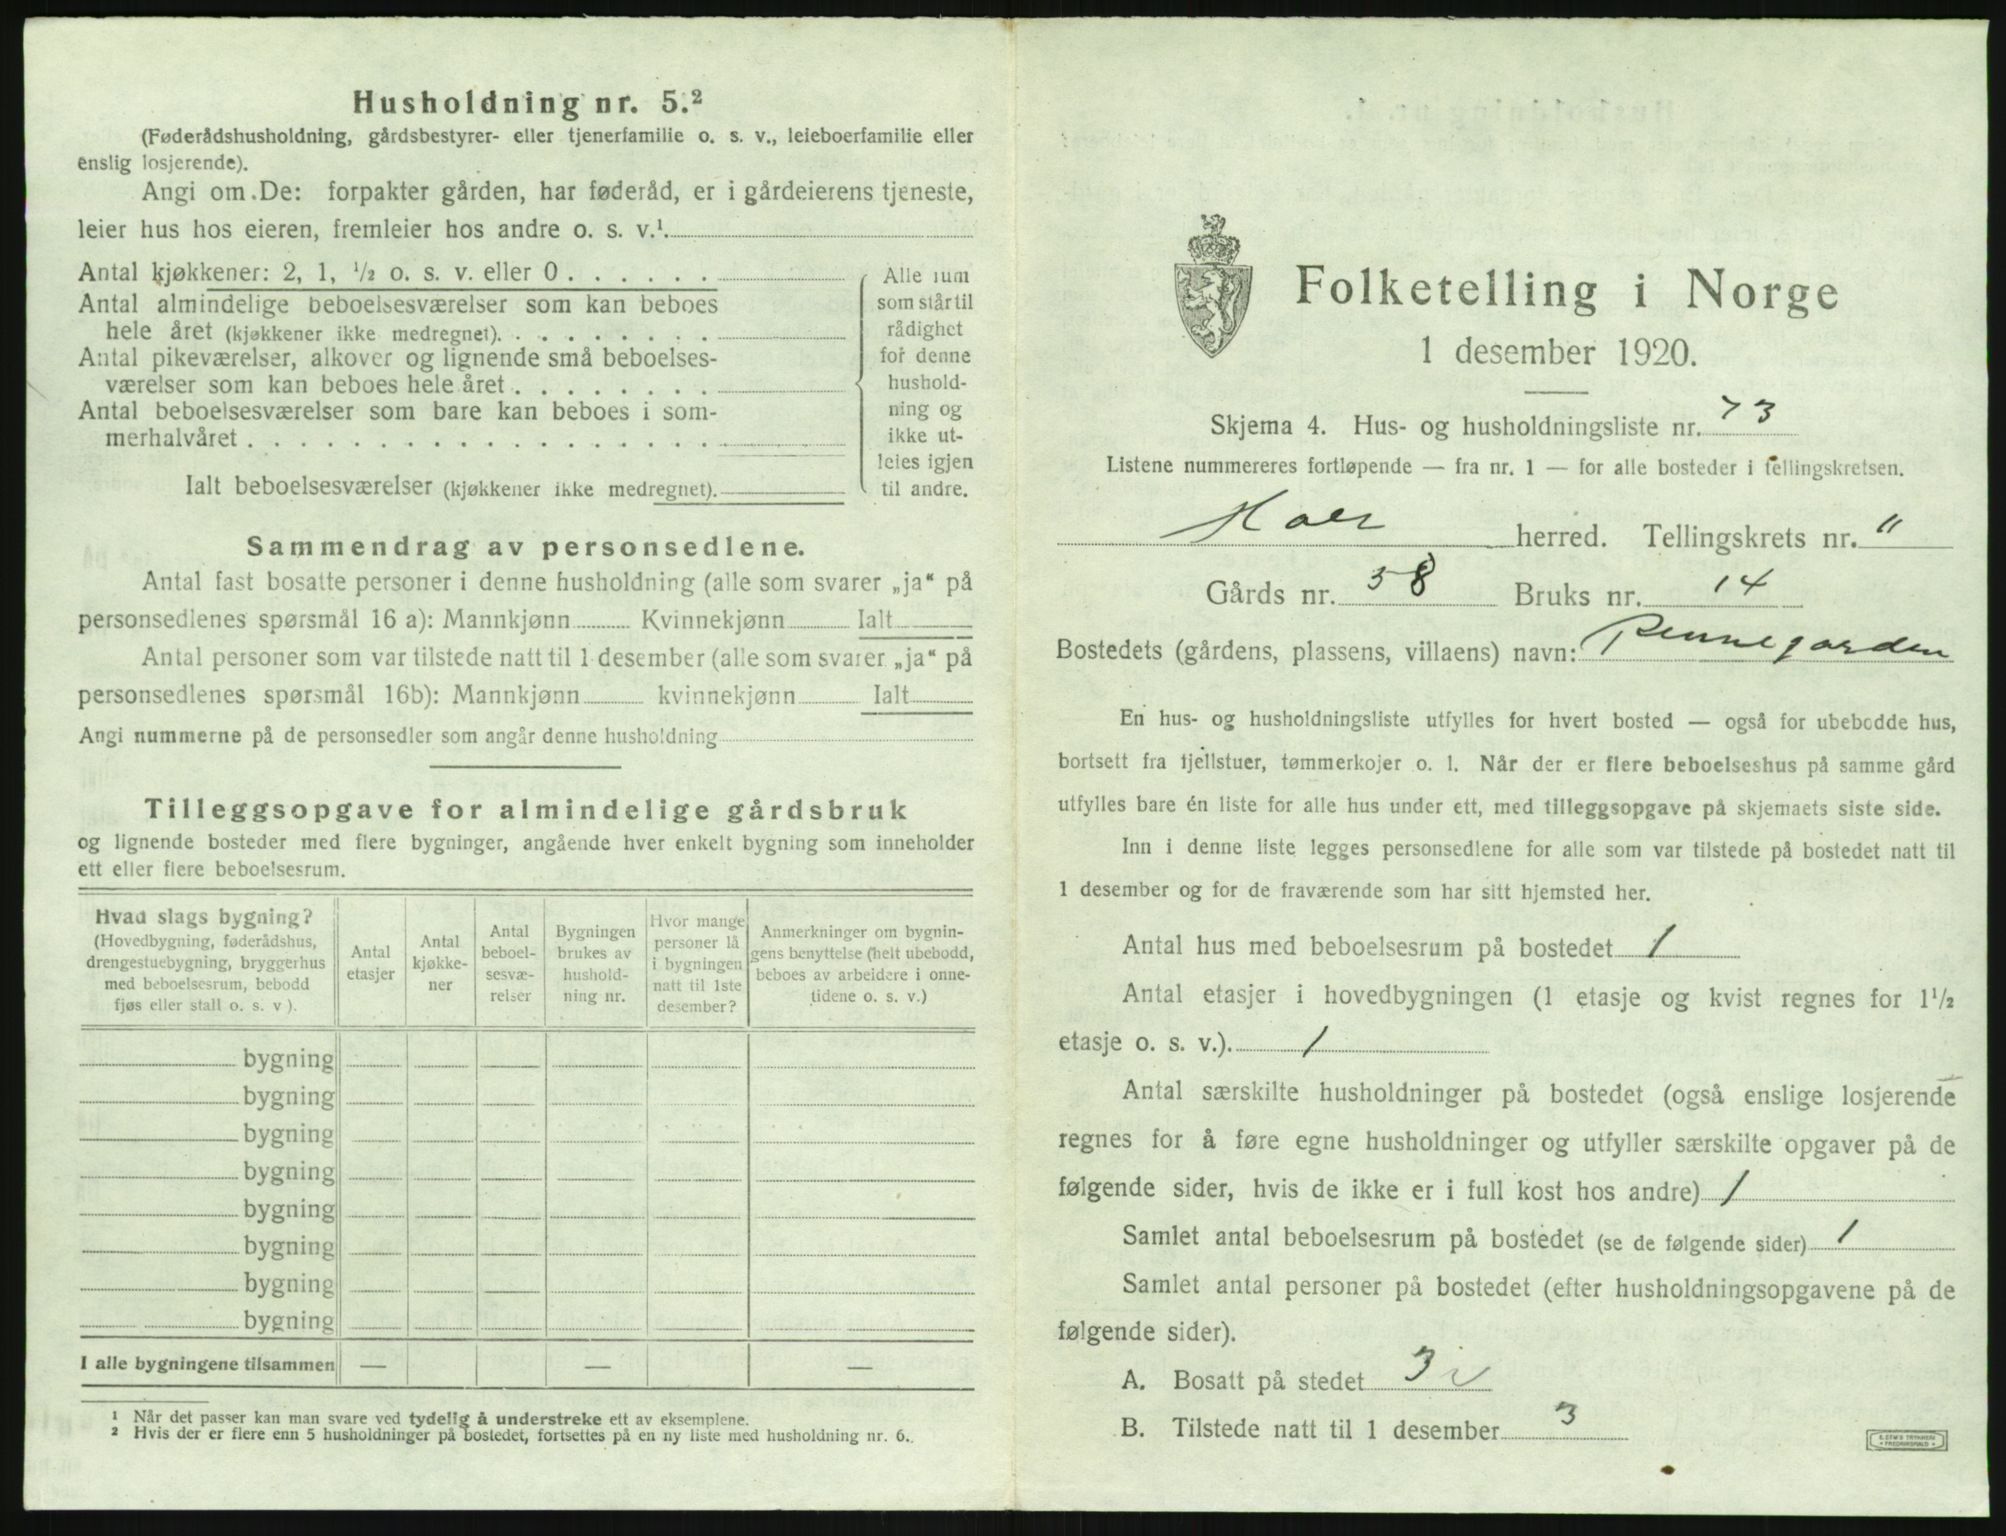 Husholdning nr. 5.²
(Føderådshusholdning, gårdsbestyrer- eller tjenerfamilie o. s. v., leieboerfamilie eller
enslig losjerende).
Angi om De: forpakter gården, har føderåd, er i gårdeierens tjeneste,
leier hus hos eieren, fremleier hos andre o. s. v.¹
Antal kjøkkener: 2, 1, ½ o. s. v. eller 0 . . . . . .
Antal almindelige beboelsesværelser som kan beboes
hele året (kjøkkener ikke medregnet). . . . . . . . .
Antal pikeværelser, alkover og lignende små beboelses-
værelser som kan beboes hele året . . . . . . . .
Antal beboelsesværelser som bare kan beboes i som-
merhalvåret . . . . . . . . . . . . . . . . . .
Ialt beboelsesværelser (kjøkkener ikke medregnet).
Alle rum
som står til
rådighet
for denne
hushold-
ning og
ikke ut-
leies igjen
til andre.
Sammendrag av personsedlene.
Antal fast bosatte personer i denne husholdning (alle som svarer „ja“ på
personsedlenes spørsmål 16 a): Mannkjønn Kvinnekjønn Ialt
Antal personer som var tilstede natt til 1 desember (alle som svarer „ja“ på
personsedlenes spørsmål 16b): Mannkjønn kvinnekjønn Ialt
Angi nummerne på de personsedler som angår denne husholdning
Tilleggsopgave for almindelige gårdsbruk
og lignende bosteder med flere bygninger, angående hver enkelt bygning som inneholder
ett eller flere beboelsesrum.
Hvad slags bygning?
(Hovedbygning, føderådshus,
drengestuebygning, bryggerhus
med beboelsesrum, bebodd
fjøs eller stall o. s. v ).
Antal
etasjer
Antal
kjøkke-
ner
Antal
beboel-
sesvæ-
relser
Bygningen
brukes av
hushold-
ning nr.
Hvor mange
personer lå
i bygningen
natt til 1ste
desember?
Anmerkninger om bygnin-
gens benyttelse (helt ubebodd,
beboes av arbeidere i onne-
tidene o. s. v.)
bygning
bygning
bygning
bygning
bygning
bygning
bygning
bygning
I alle bygningene tilsammen — — —
¹ Når det passer kan man svare ved tydelig å understreke ett av eksemplene.
² Hvis der er flere enn 5 husholdninger på bostedet, fortsettes på en ny liste med husholdning nr. 6.
Folketelling i Norge
1 desember 1920.
Skjema 4. Hus- og husholdningsliste nr. 73
Listene nummereres fortløpende — fra nr. 1 — for alle bosteder i tellingskretsen.
herred. Tellingskrets nr. 11
Gårds nr. 58 Bruks nr. 14
Bostedets (gårdens, plassens, villaens) navn: Rennegarden
En hus- og husholdningsliste utfylles for hvert bosted — også for ubebodde hus,
bortsett fra fjellstuer, tømmerkojer o. l. Når der er flere beboelseshus på samme gård
utfylles bare én liste for alle hus under ett, med tilleggsopgave på skjemaets siste side.
Inn i denne liste legges personsedlene for alle som var tilstede på bostedet natt til
1 desember og for de fraværende som har sitt hjemsted her.
Antal hus med beboelsesrum på bostedet 1
Antal etasjer i hovedbygningen (1 etasje og kvist regnes for 1½
etasje o. s. v.). 1
Antal særskilte husholdninger på bostedet (også enslige losjerende
regnes for å føre egne husholdninger og utfyller særskilte opgaver på de
følgende sider, hvis de ikke er i full kost hos andre) 1
Samlet antal beboelsesrum på bostedet (se de følgende sider) 1
Samlet antal personer på bostedet (efter husholdningsopgavene på de
følgende sider).
A. Bosatt på stedet 3
B. Tilstede natt til 1 desember 3